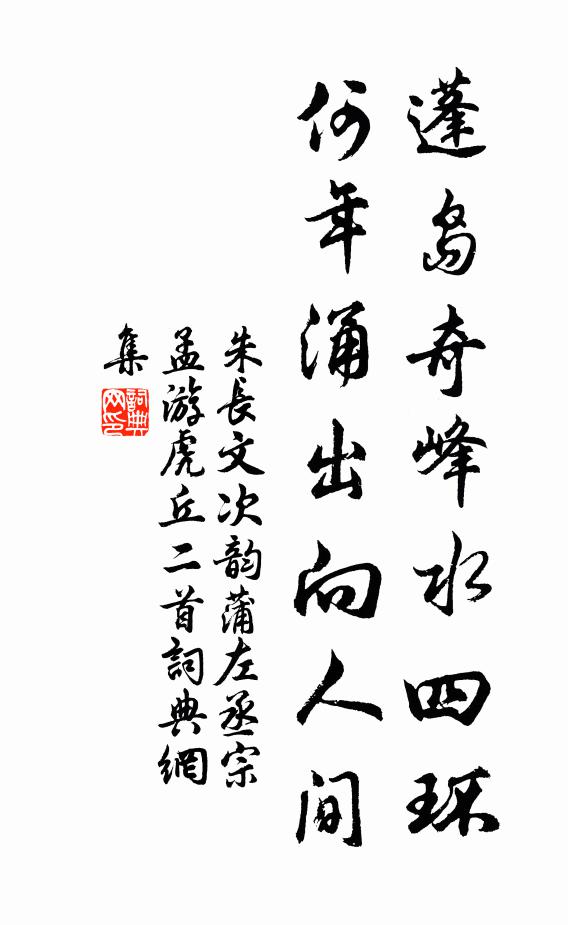 蓬岛奇峰水四环
何年涌出向人间
朱長文次韵蒲左丞宗
孟游虎丘二首詞典網
集
詞典
网印